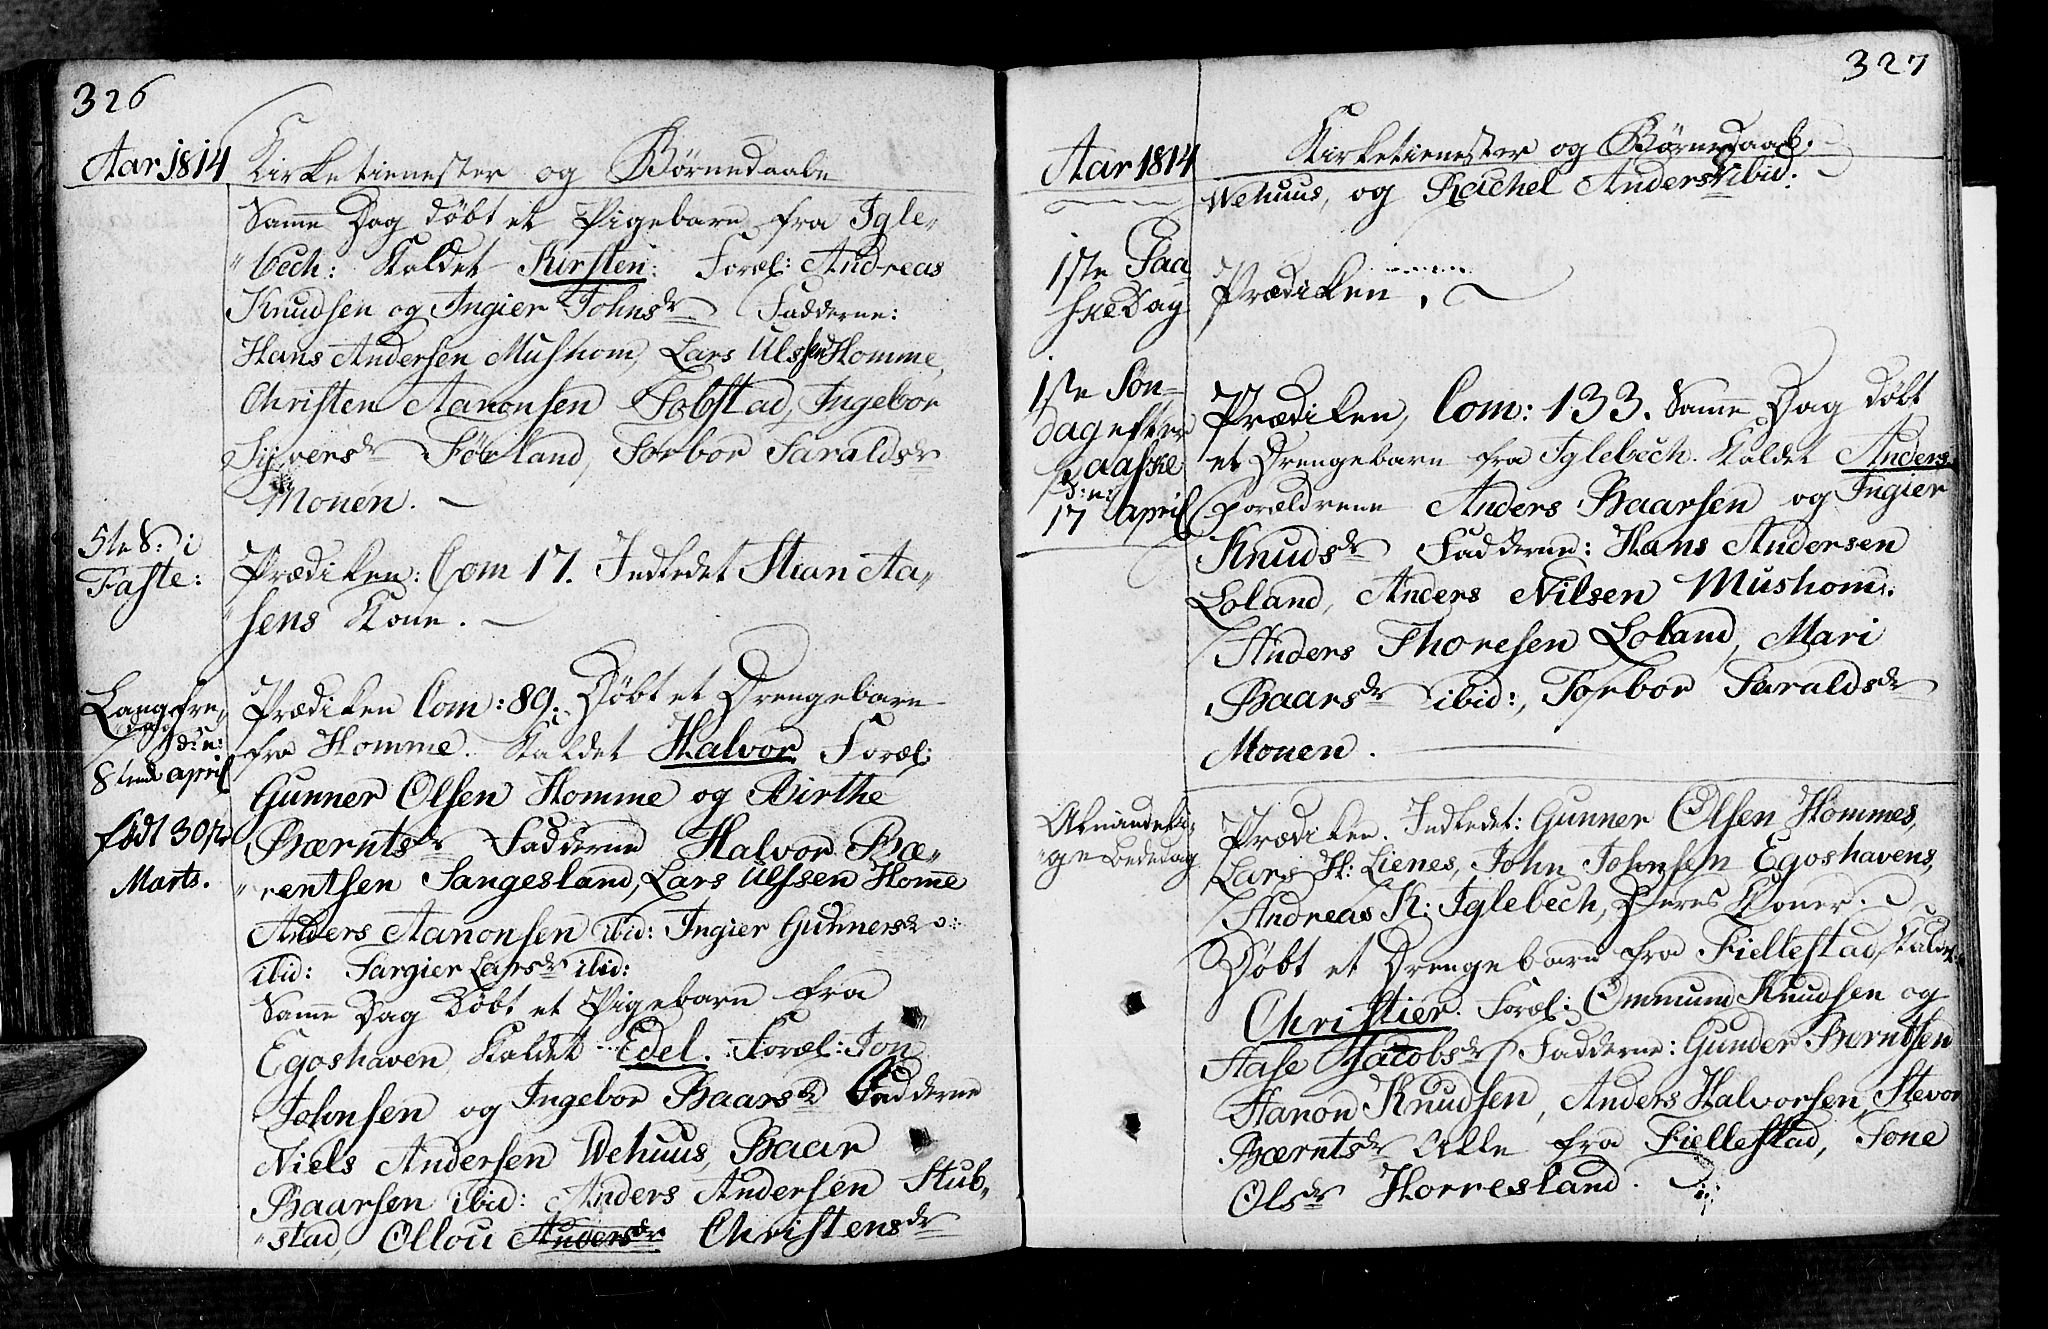 326
Aar 1814 Kirketienester og Börnedaabe
Samme Dag döbt et Pigebarn fra Igle-
bech: Kaldet Kirsten. Foræl: Andreas
Knudsen og Ingier Johnsdr Fadderne:
Hans Andersen Mushom, Lars Ulssen Homme,
Christen Aanonsen Stobstad, Ingebor
Syversdr Förland, Torbor Taraldsdr
Monen.
5te S: i
Faste:
Prædiken: Com 17. Indledet Stian Aa-
sens Kone.
Langfre-
dag
d: n:
8tende april
födt 30te
Marts.
Prædiken Com: 89. Döbt et Drengebarn
fra Homme. Kaldet Halvor Foræl:
Gunner Olsen Homme og Birthe
Bærntsdr Fadderne Halvor Bæ-
rentsen Sangesland, Lars Ulssen Home
Anders Aanonsen ibid: Ingier Gunnersdr
ibid: Targier Larsdr ibid:
Samme Dag Döbt et Pigebarn fra
Egoshaven, Kaldet Edel. Foræl: Jon
Johnsen og Ingebor Baarsdr Fadderne
Niels Andersen Wehuus, Baar
Baarsen ibid: Anders Andersen Stub-
stad, Ollou Andersdr Christensdr
327
Aar 1814
Kirketienester og Börnedaab.
Wehuus, og Rachel Andersdr ibid:
1ste Paa
skeDag
Prædiken.
1ste Søn-
dag efter
Paaske
d: n:
17 april
Prædiken, Com: 133. Samme Dag döbt
et Drengebarn fra Iglebech. Kaldet Anders.
Forældrene Anders Baarsen og Ingier
Knudsdr Fadderne: Hans Andersen
Loland, Anders Nilsen Mushom.
Anders Thoresen Loland, Mari
Baarsdr ibid:, Torbor Taraldsdr
Monen.
Almindeli-
ge Bededag
Prædiken. Indledet: Gunner Olsen Hommes,
Lars H: Lienes, John Johnsen Egoshavens,
Andreas K: Iglebech, Deres Koner.
Döbt et Drengebarn fra Fiellestad, Kaldet
Christier. Foræl: Ommund Knudsen og
Aase Jacobsdr Fadderne: Gunder Berntsen
Aanon Knudsen, Anders Halvorsen, Stevor
Bærntsdr Alle fra Fiellestad, Tone
Olsdr Horresland.